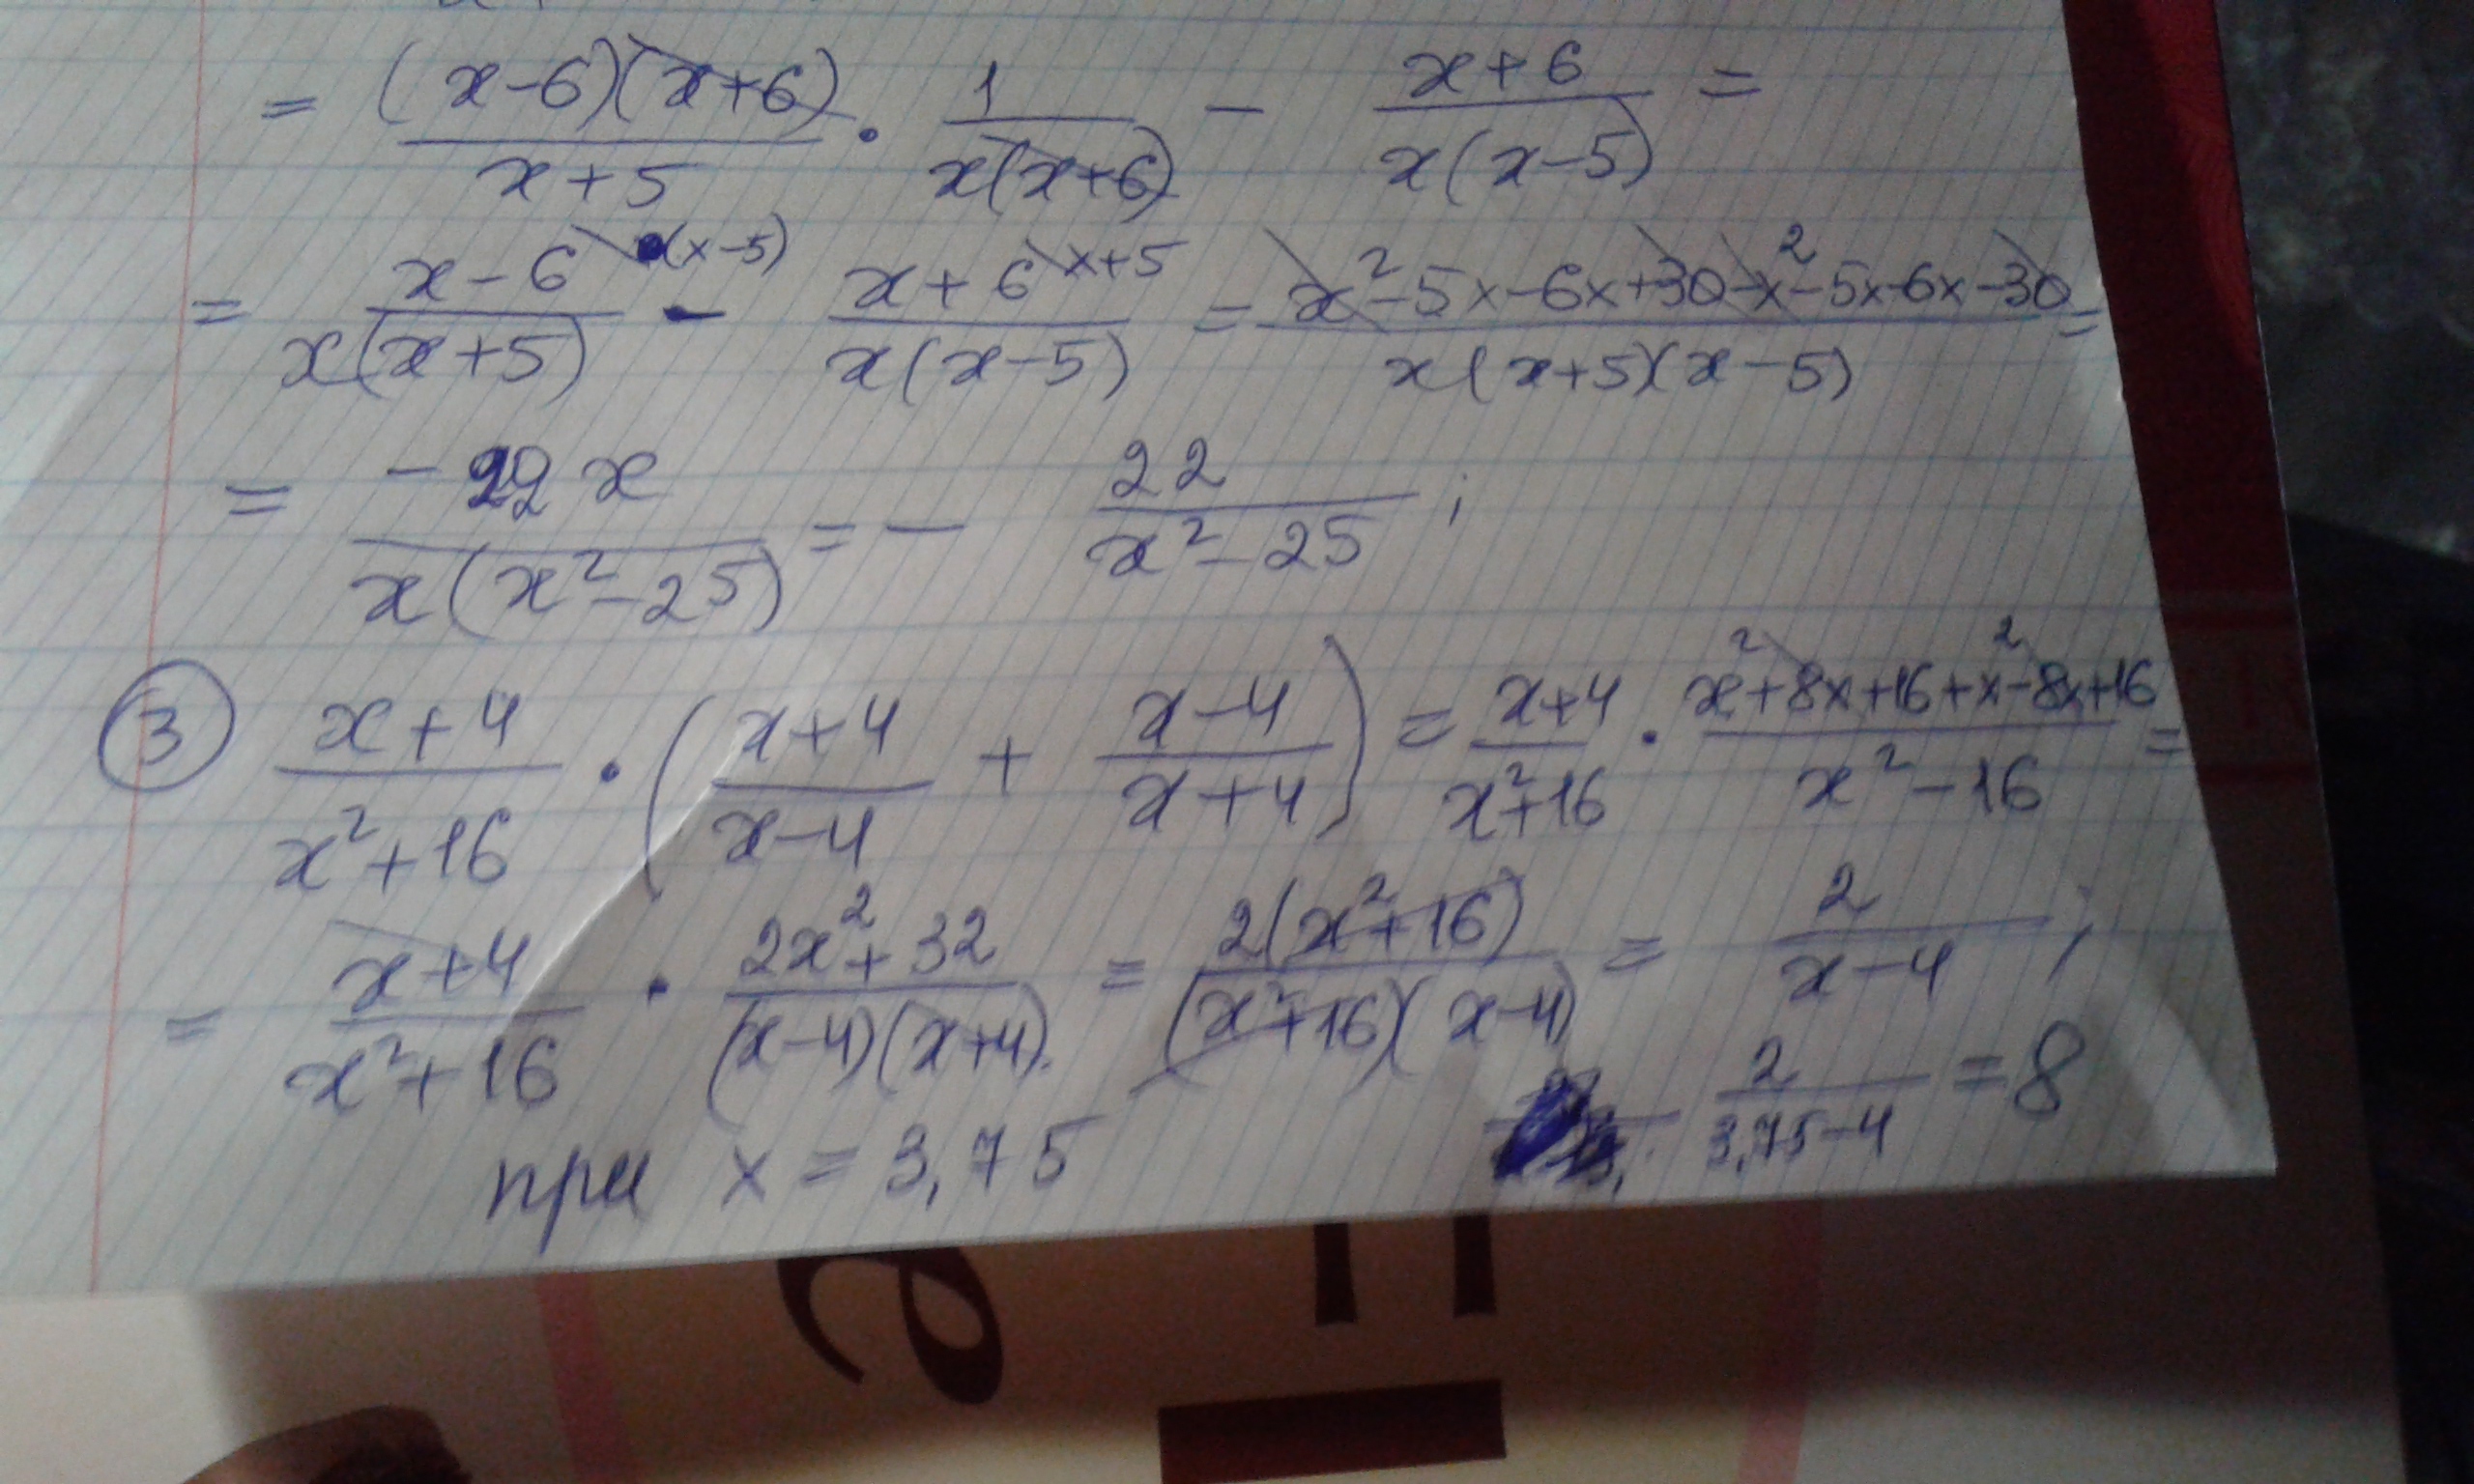 = (x-6)(x+6)/x+5 · 1/x(x+6) - x+6/x(x-5) =
= x-6 (x-5)/x(x+5) - x+6 x+5/x(x-5) = x²-5x-6x+30-x²-5x-6x-30/x(x+5)(x-5) =
= -22x/x(x²-25) = - 22/x²-25 ;
3 x+4/x²+16 · (x+4/x-4 + x-4/x+4) = x+4/x²+16 · x²+8x+16+x²-8x+16/x²-16 =
= x+4/x²+16 · 2x²+32/(x-4)(x+4) = 2(x²+16)/(x²+16)(x-4) = 2/x-4 ;
при x = 3,75 2/3,75-4 = 8